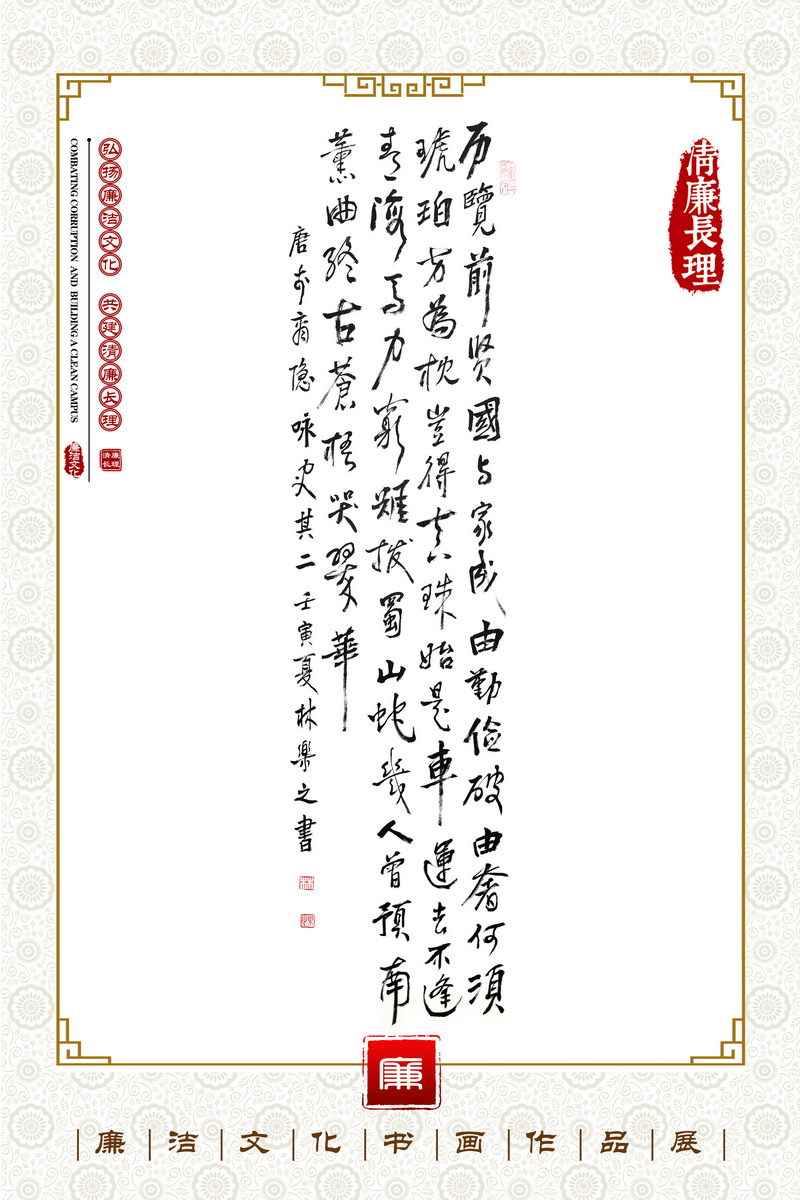 清廉長理
历覽前贤國与家成由勤儉破由奢何須
琥珀方為枕豈得真珠始是車運去不逢
青海马力窮難拔蜀山蛇幾人曾預南
薰曲終古蒼梧哭翠華
唐李商隐咏史其二壬寅夏林樂之書
弘扬廉洁文化 共建清廉长理
COMBATING CORRUPTION AND BUILDING A CLEAN CAMPUS
清廉长理
廉洁文化
廉
廉洁文化书画作品展